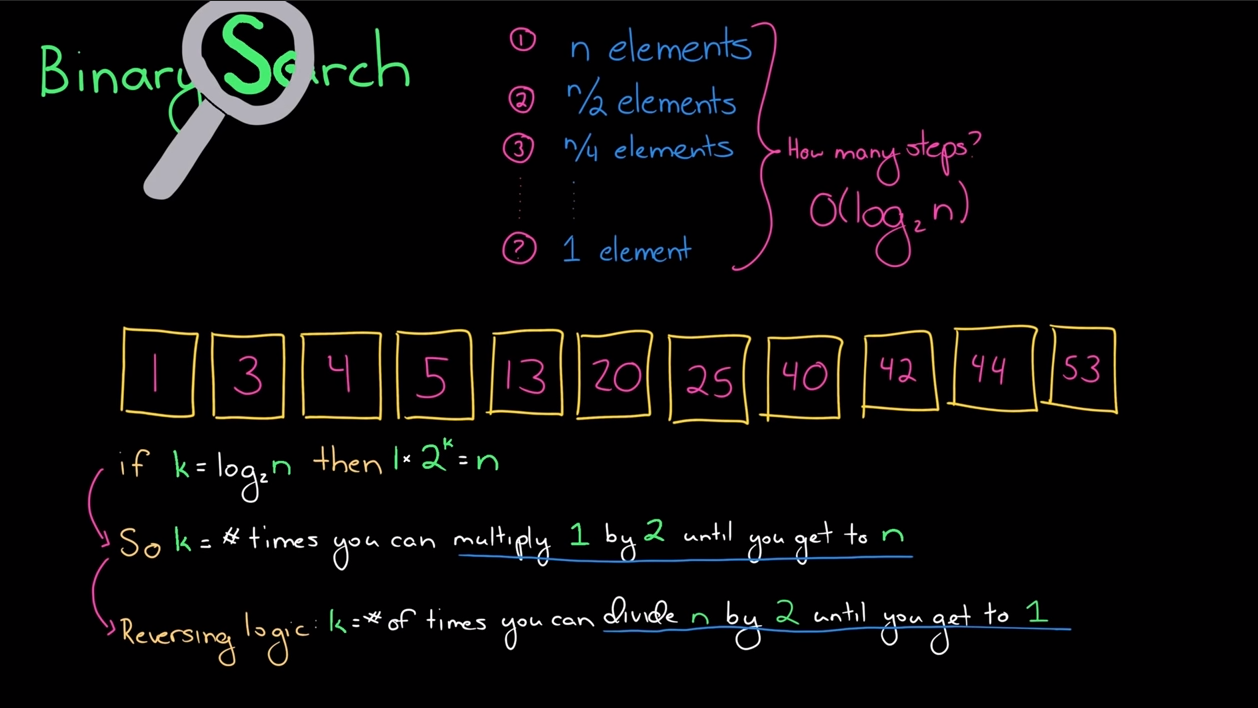 Binary Search
① n elements
② n/2 elements
③ n/4 elements
? 1 element
How many steps?
O(log₂ n)
1 3 4 5 13 20 25 40 42 44 53
if k = log₂n then 1 × 2ᵏ = n
So k = # times you can multiply 1 by 2 until you get to n
Reversing logic: k = # of times you can divide n by 2 until you get to 1